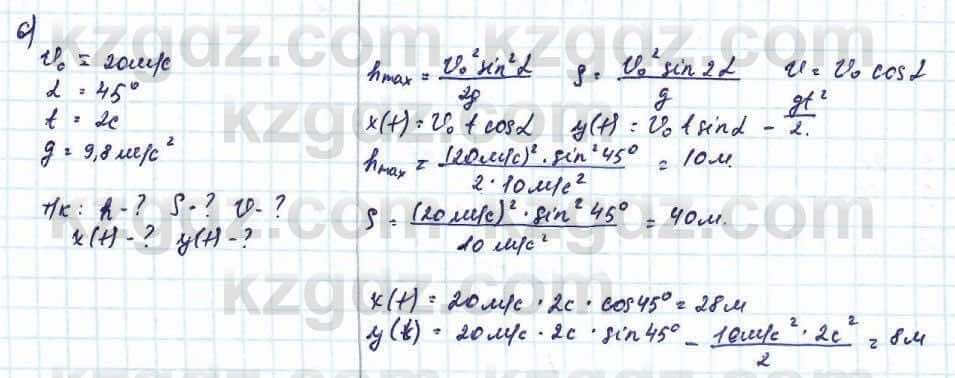 6)
v₀ = 20м/с
α = 45°
t = 2с
g = 9,8м/с²
Т/к: h - ? S - ? v - ?
x(t) - ? y(t) - ?
hmax = v₀² sin² α / 2g S = v₀² sin 2α / g v = v₀ cos α
x(t) = v₀ t cos α y(t) = v₀ t sin α - gt² / 2.
hmax = (20м/с)² · sin² 45° / 2 · 10м/с² = 10м.
S = (20м/с)² · sin² 45° / 10 м/с² = 40м.
x(t) = 20м/с · 2с · cos 45° = 28м
y(t) = 20м/с · 2с · sin 45° - 10м/с² · 2с² / 2 = 8м
kzgdz.com
kzgdz.com
kzgdz.com
kzgdz.com